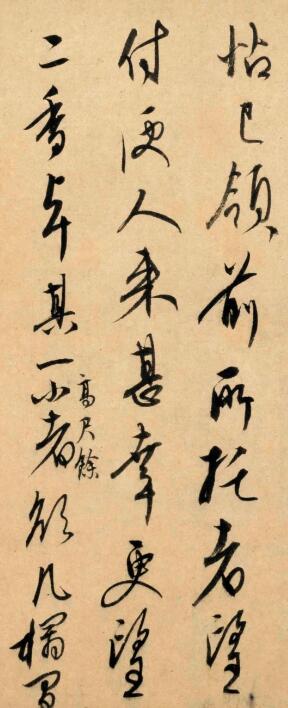 帖已領前所托者望
付便人来甚幸更望
二香卓其一小者高尺餘几榻間